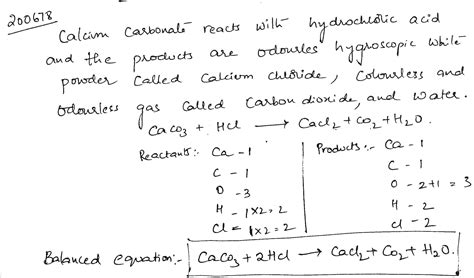 200678
Calcium Carbonate reacts with hydrochloric acid
and the products are odourless hygroscopic white
powder called Calcium chloride, Colourless and
odourless gas called Carbon dioxide, and water.
CaCO3 + HCl → CaCl2 + CO2 + H2O.
Reactants:- Ca - 1 Products:- Ca - 1
C - 1 C - 1
O - 3 O - 2+1 = 3
H - 1×2 = 2 H - 2
Cl = 1×2 = 2 Cl - 2
Balanced equation:- CaCO3 + 2HCl → CaCl2 + CO2 + H2O.